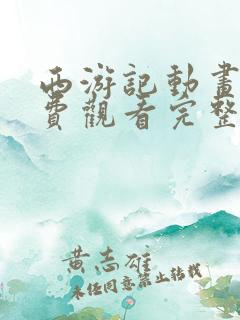 西游記動畫
費觀看完整
黃志雄
未經同意禁止轉載